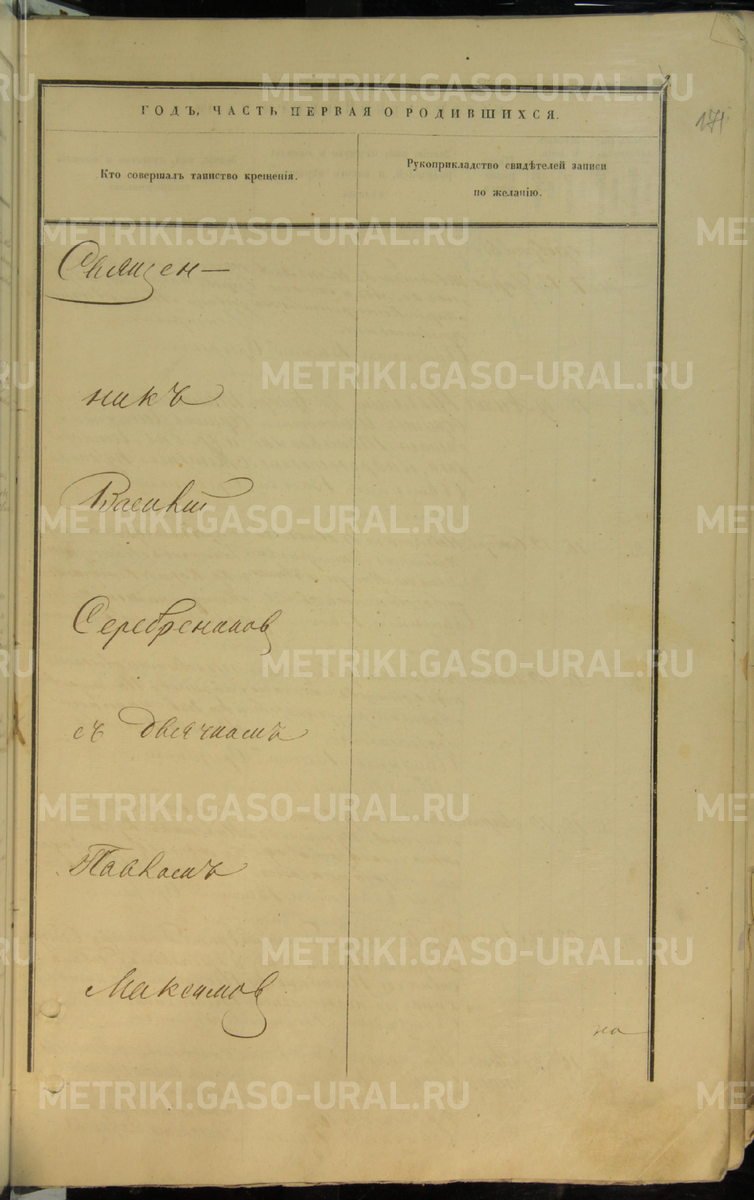 171
ГОДЪ, ЧАСТЬ ПЕРВАЯ О РОДИВШИХСЯ.
Кто совершалъ таинство крещенія.
Рукоприкладство свидѣтелей записи
по желанію.
Священ—
никъ
Василій
Серебреников
съ дьячкомъ
Павломъ
Максимов
на
METRIKI.GASO-URAL.RU